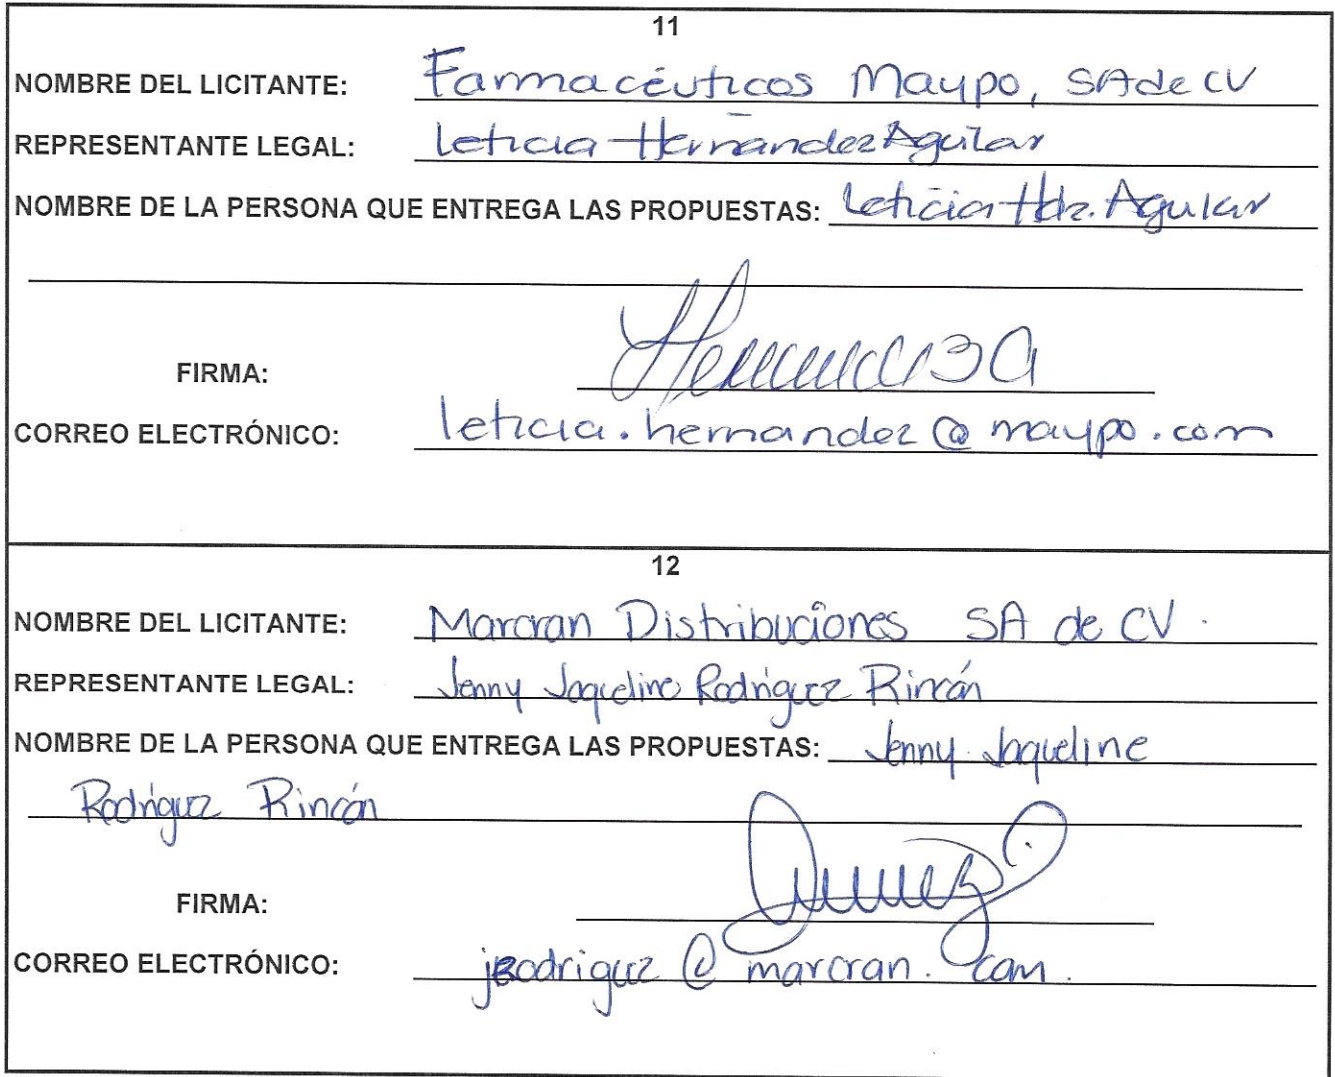 11
NOMBRE DEL LICITANTE: Farmacéuticos Maypo, SA de CV
REPRESENTANTE LEGAL: Leticia Hernández Aguilar
NOMBRE DE LA PERSONA QUE ENTREGA LAS PROPUESTAS: Leticia Hdz. Aguilar
FIRMA:
CORREO ELECTRÓNICO: leticia.hernandez@maypo.com
12
NOMBRE DEL LICITANTE: Marcran Distribuciones SA de CV.
REPRESENTANTE LEGAL: Jenny Jaqueline Rodríguez Rincón
NOMBRE DE LA PERSONA QUE ENTREGA LAS PROPUESTAS: Jenny Jaqueline
Rodríguez Rincón
FIRMA:
CORREO ELECTRÓNICO: @ marcran. com.